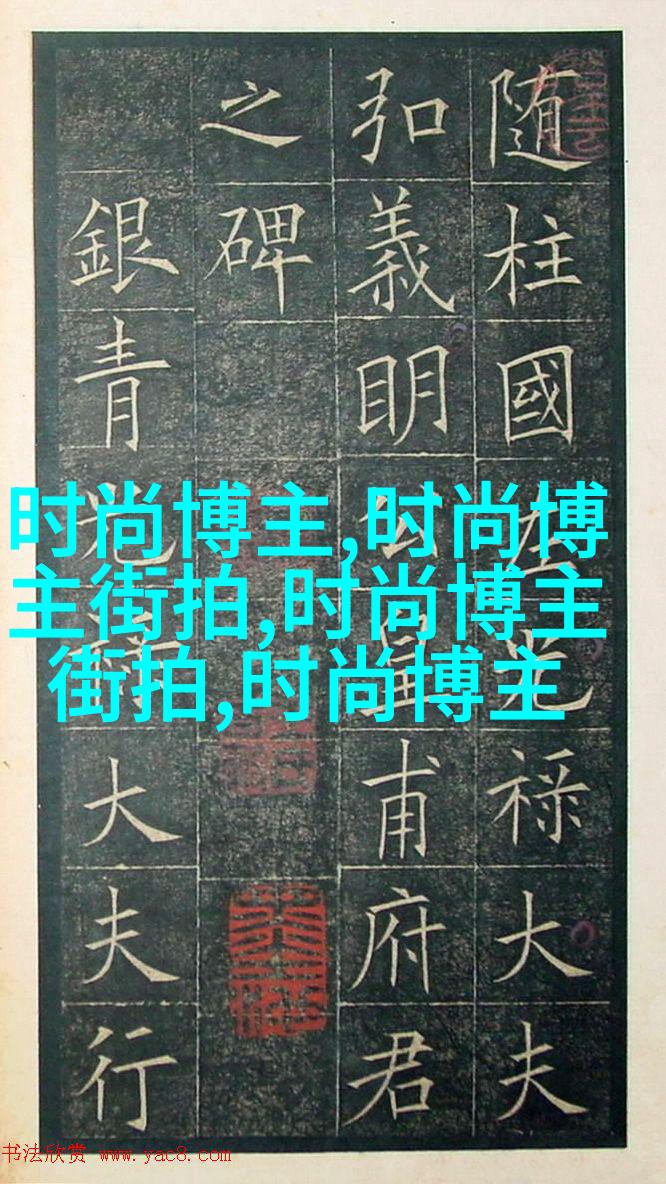 随柱國左光禄大夫
弘義明公皇甫府君
之碑
銀青光禄大夫行
时尚博主,时尚博
主街拍,时尚博主
街拍,时尚博主
书法欣赏 www.yac8.com